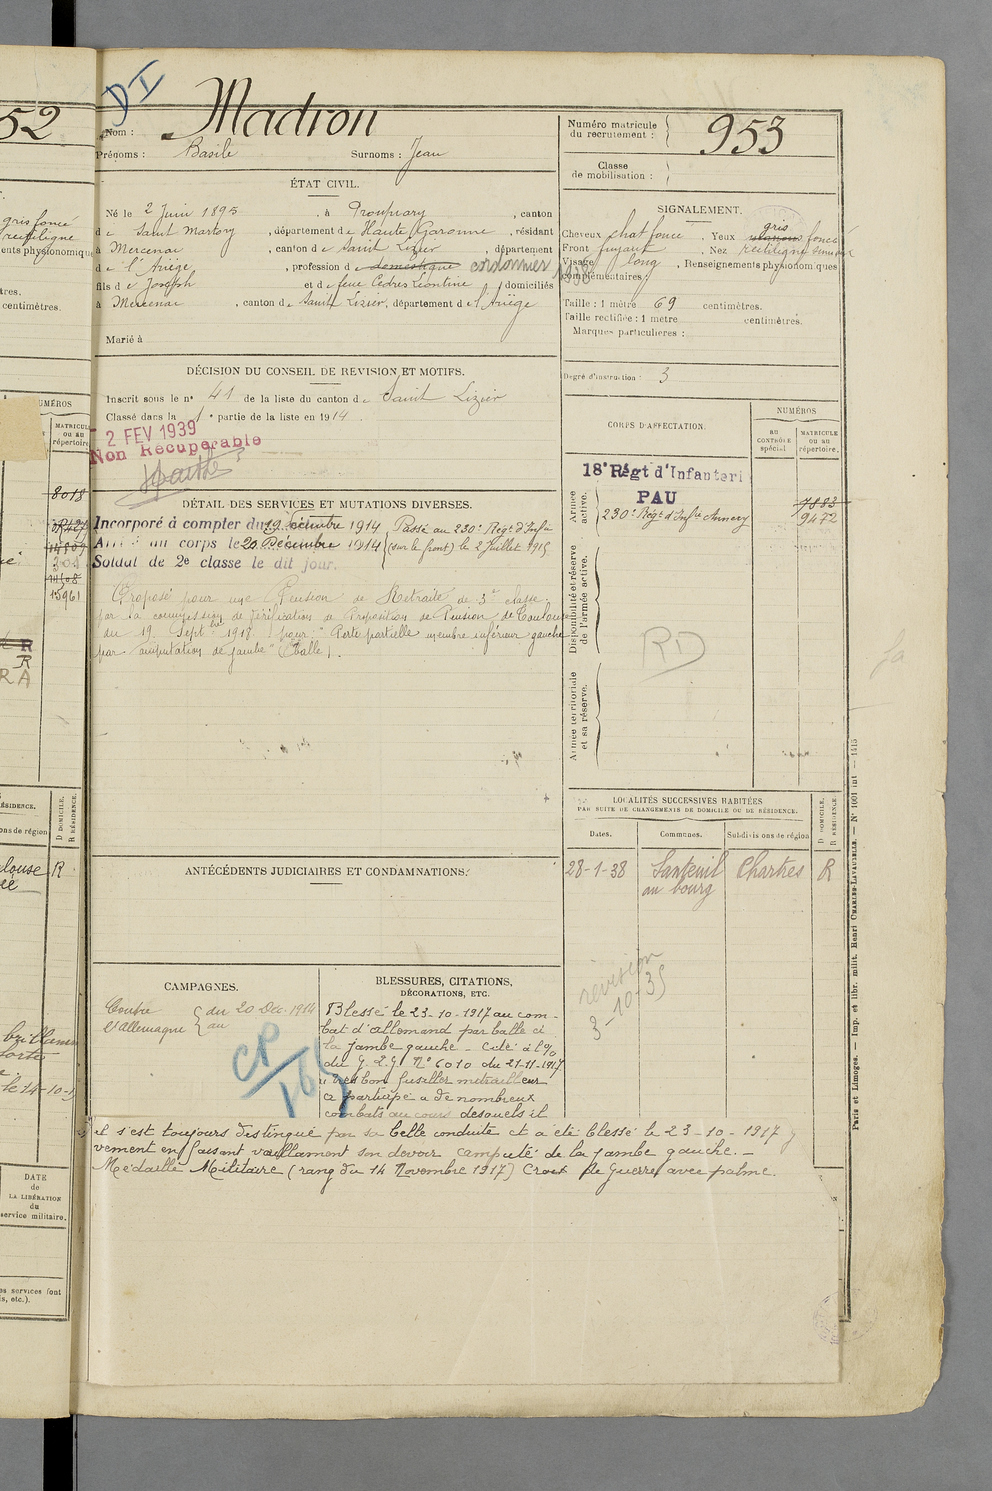 52
DI
Nom : Madron
Prénoms : Basile Surnoms : Jean
Numéro matricule du recrutement : 953
Classe de mobilisation :
ÉTAT CIVIL.
Né le 2 Juin 1895, à Proupiary, canton
de Saint Martory, département de Haute Garonne, résidant
à Mercenac, canton de Saint Lizier département
de l'Ariège, profession de domestique cordonnier
fils de Joseph et de feue Cèdres Léontine domiciliés
à Mercenac, canton de Saint Lizier, département de l'Ariège
Marié à
SIGNALEMENT.
Cheveux chat foncé, Yeux gris foncé
Front fuyant, Nez rectiligne sinueux
Visage long, Renseignements physionomiques
complémentaires :
Taille : 1 mètre 69 centimètres.
Taille rectifiée : 1 mètre centimètres.
Marques particulières :
Degré d'instruction : 3
DÉCISION DU CONSEIL DE REVISION ET MOTIFS.
Inscrit sous le n° 41 de la liste du canton de Saint Lizier
Classé dans la 1e partie de la liste en 1914
2 FEV 1939
Non Récupérable
CORPS D'AFFECTATION.
NUMÉROS
au CONTRÔLE spécial
MATRICULE ou au répertoire.
Armée active.
18e Régt d'Infanteri
PAU
7883
230e Régt d'Inf.ie Annecy 9472
Disponibilité et réserve de l'armée active.
RD
Armée territoriale et sa réserve.
DÉTAIL DES SERVICES ET MUTATIONS DIVERSES.
Incorporé à compter du 19 Décembre 1914 Passé au 230e Régt d'Inf.ie
Arrivé au corps le 20 Décembre 1914 (sur le front) le 2 Juillet 1915
Soldat de 2e classe le dit jour.
Proposé pour une Pension de Retraite de 3e classe
par la commission de vérification de Proposition de Pension de Toulouse
du 19 Septbre 1918 pour "Perte partielle membre inférieur gauche
par amputation de jambe" (Balle).
LOCALITÉS SUCCESSIVES HABITÉES
PAR SUITE DE CHANGEMENTS DE DOMICILE OU DE RÉSIDENCE.
Dates. Communes. Subdivisions de région D DOMICILE. R RÉSIDENCE
28-1-38 Santeuil au bourg Chartres R
révision
3-10-35
ANTÉCÉDENTS JUDICIAIRES ET CONDAMNATIONS.
CAMPAGNES.
Contre l'Allemagne du 20 Déc. 1914
au
CP
BLESSURES, CITATIONS, DÉCORATIONS, ETC.
Blessé le 23-10-1917 au com-
bat d'allemand par balle à
la jambe gauche - Cité à l'O/
du G.Q.G. N° 6010 du 21-11-1917
"très bon fusilier mitrailleur
a participé à de nombreux
combats au cours desquels il
il s'est toujours distingué par sa belle conduite et a été blessé le 23-10-1917 g
vement en faisant vaillamment son devoir amputé de la jambe gauche. -
Médaille Militaire (rang du 14 Novembre 1917) Croix de Guerre avec palme.
Paris et Limoges. — Imp. et libr. milit. Henri CHARLES-LAVAUZELLE. — N° 1001 int — 1413
gris foncé
rectiligne
centimètres.
NUMÉROS
MATRICULE ou au répertoire
8018
15961
R
R
RA
RÉSIDENCE.
D DOMICILE.
R RÉSIDENCE.
R
DATE de LA LIBÉRATION du service militaire.